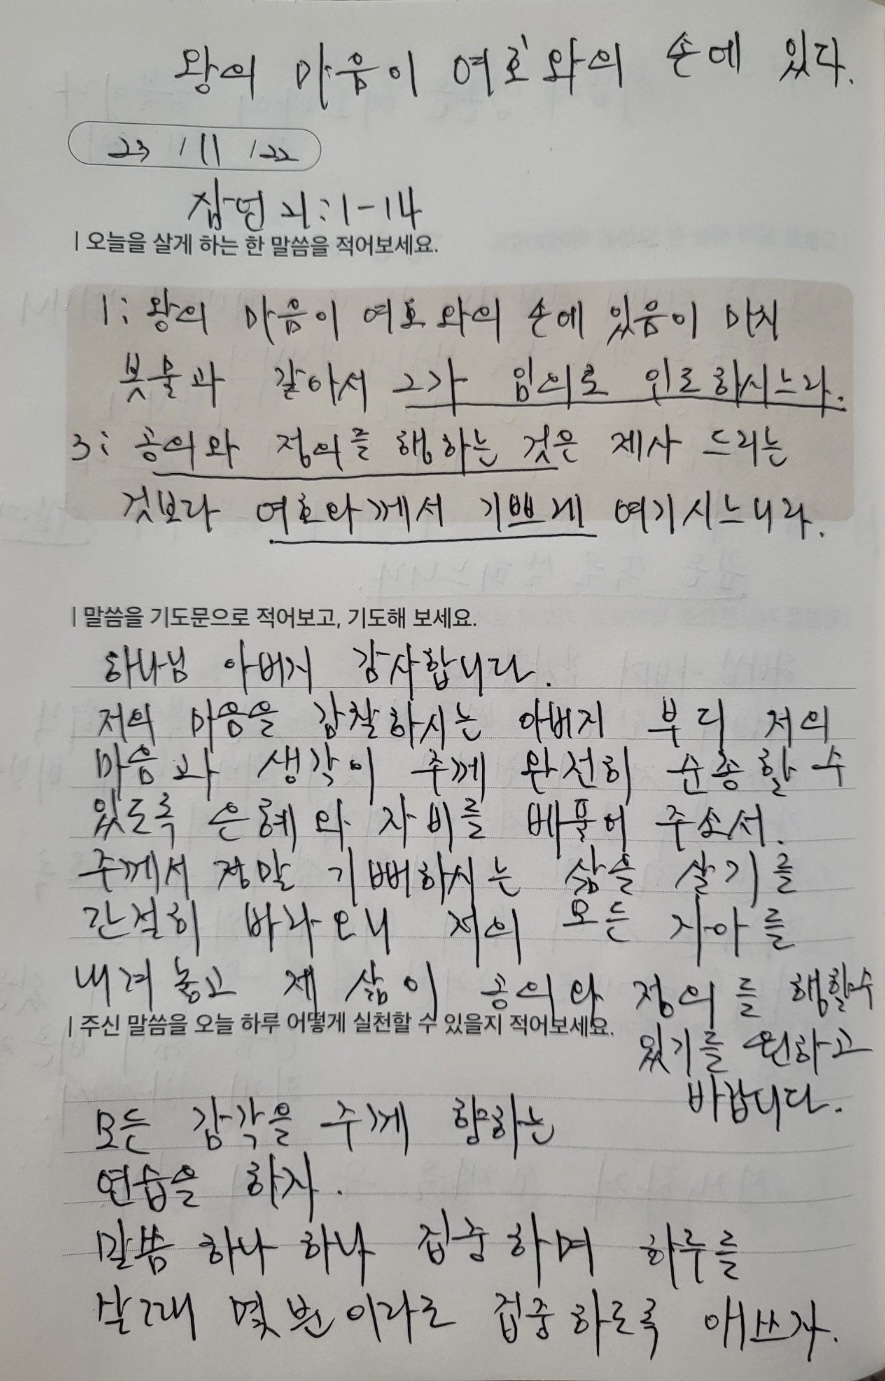 왕의 마음이 여호와의 손에 있다.
23 / 11 / 22
잠언 21:1-14
| 오늘을 살게 하는 한 말씀을 적어보세요.
1: 왕의 마음이 여호와의 손에 있음이 마치
봇물과 같아서 그가 임의로 인도하시느니라.
3: 공의와 정의를 행하는 것은 제사 드리는
것보다 여호와께서 기쁘게 여기시느니라.
| 말씀을 기도문으로 적어보고, 기도해 보세요.
하나님 아버지 감사합니다.
저의 마음을 감찰하시는 아버지 부디 저의
마음과 생각이 주께 완전히 순종할 수
있도록 은혜와 자비를 베풀어 주소서.
주께서 정말 기뻐하시는 삶을 살기를
간절히 바라오니 저의 모든 자아를
내려놓고 제 삶이 공의와 정의를 행할수
있기를 원하고
바랍니다.
| 주신 말씀을 오늘 하루 어떻게 실천할 수 있을지 적어보세요.
모든 감각을 주께 향하는
연습을 하자.
말씀 하나 하나 집중하며 하루를
살 때 몇 번이라도 집중하도록 애쓰자.